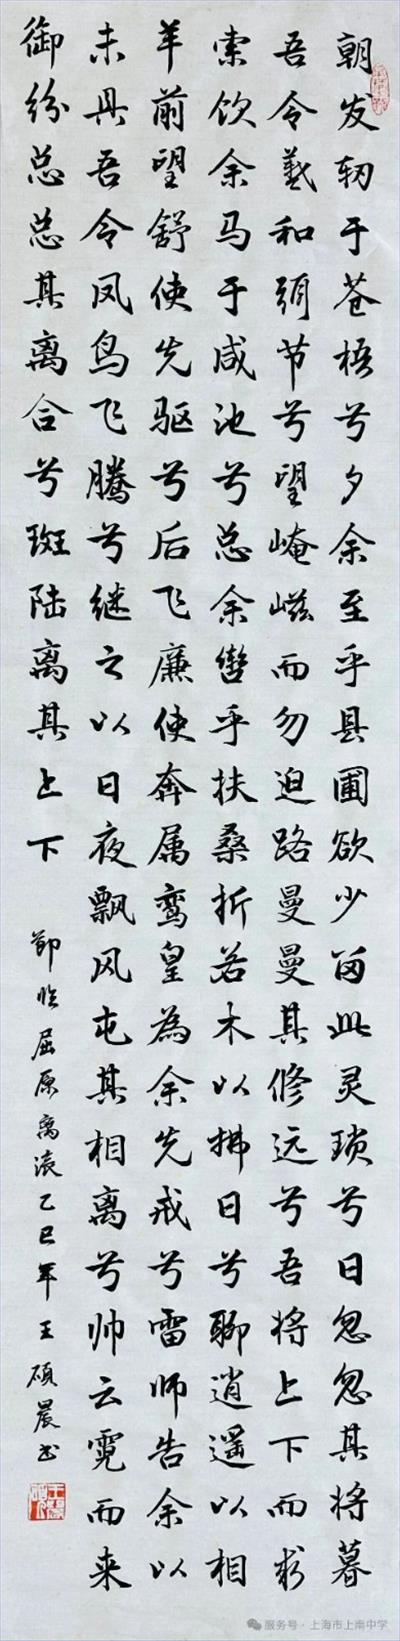 朝发轫于苍梧兮夕余至乎县圃欲少留此灵琐兮日忽忽其将暮
吾令羲和弭节兮望崦嵫而勿迫路曼曼其修远兮吾将上下而求
索饮余马于咸池兮总余辔乎扶桑折若木以拂日兮聊逍遥以相
羊前望舒使先驱兮后飞廉使奔属鸾皇為余先戒兮雷师告余以
未具吾令凤鸟飞腾兮继之以日夜飘风屯其相离兮帅云霓而来
御纷总总其离合兮斑陆离其上下
节临屈原离骚乙巳年王硕晨书
服务号·上海市上南中学